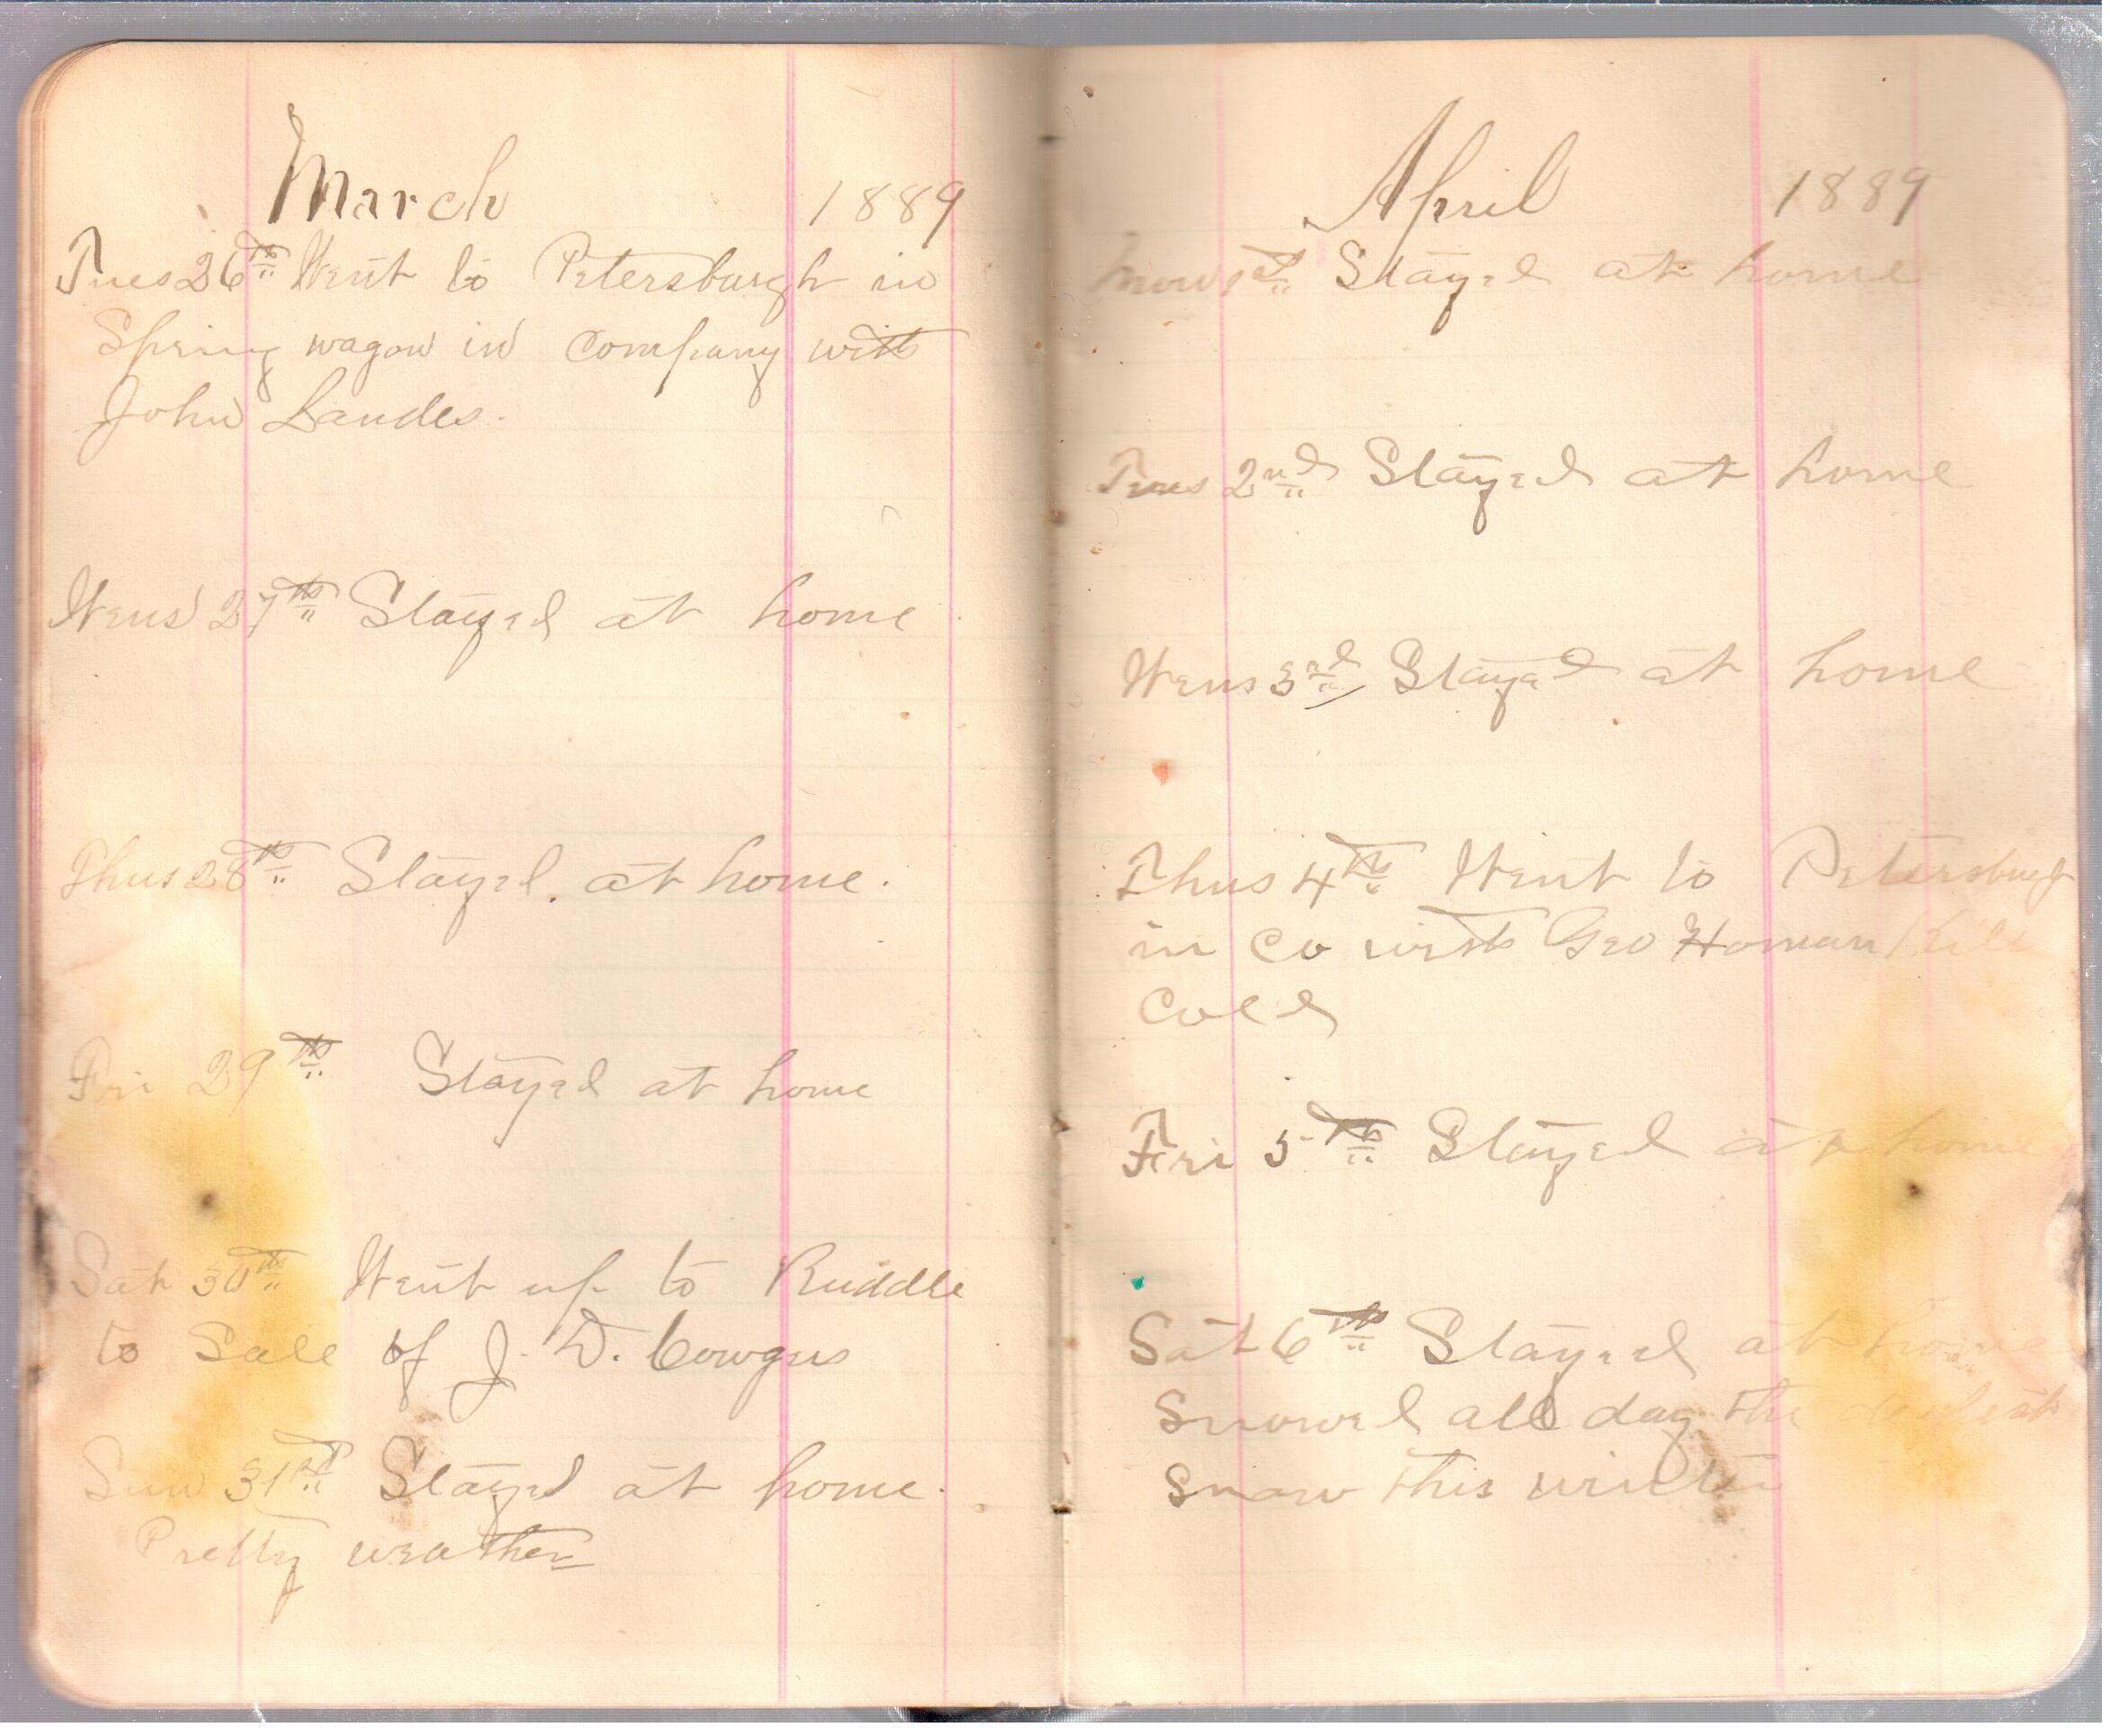 March 1889
Tues 26th Went to Petersburgh in
Spring wagon in Company with
John Landes.
Wens 27th Stayed at home
Thus 28th Stayed. at home.
Fri 29th Stayed at home
Sat 30th Went up to Ruddle
to Sale of J. D. Cowgus
Sun 31st Stayed at home.
Pretty weather
April 1889
Mon 1st Stayed at home
Tues 2nd Stayed at home
Wens 3rd Stayed at home
Thus 4th Went to Petersburgh
in Co with Geo Homan
Cold
Fri 5th Stayed at home
Sat 6th Stayed at home
Snowed all day the
Snow this winter